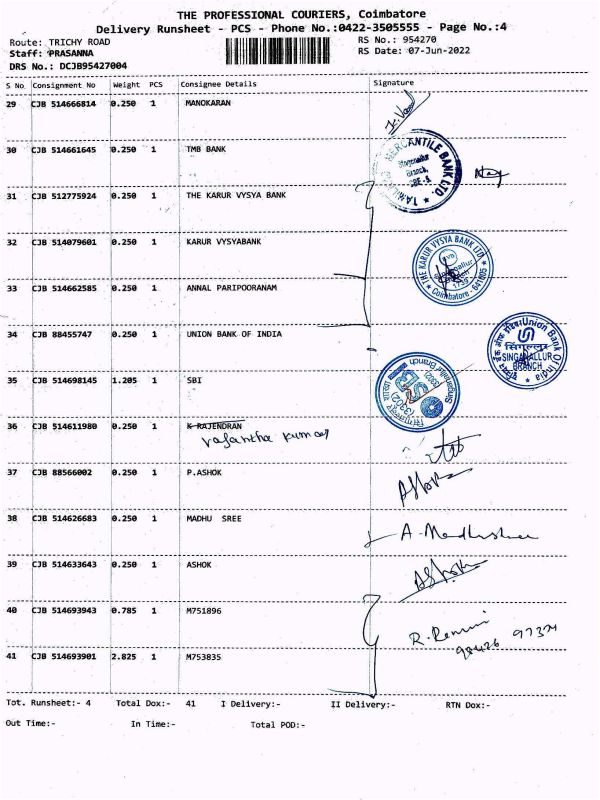 THE PROFESSIONAL COURIERS, Coimbatore
Delivery Runsheet - PCS - Phone No.:0422-3505555 - Page No.:4
Route: TRICHY ROAD
RS No.: 954270
Staff: PRASANNA
RS Date: 07-Jun-2022
DRS No.: DCJB95427004
S No Consignment No Weight PCS Consignee Details Signature
29 CJB 514666814 0.250 1 MANOKARAN
30 CJB 514661645 0.250 1 TMB BANK
MERCANTILE BANK LTD.
Branch,
31 CJB 512775924 0.250 1 THE KARUR VYSYA BANK
32 CJB 514079601 0.250 1 KARUR VYSYABANK
THE KARUR VYSYA BANK LTD
Coimbatore - 641005
33 CJB 514662585 0.250 1 ANNAL PARIPOORANAM
34 CJB 88455747 0.250 1 UNION BANK OF INDIA
Union Bank Of India
SINGANALLUR
BRANCH
35 CJB 514698145 1.205 1 SBI
36 CJB 514611980 0.250 1 K RAJENDRAN
37 CJB 88566002 0.250 1 P.ASHOK
Ashok
38 CJB 514626683 0.250 1 MADHU SREE
A. Madhusree
39 CJB 514633643 0.250 1 ASHOK
Ashok
40 CJB 514693943 0.785 1 M751896
41 CJB 514693901 2.825 1 M753835
Tot. Runsheet:- 4 Total Dox:- 41 I Delivery:- II Delivery:- RTN Dox:-
Out Time:- In Time:- Total POD:-